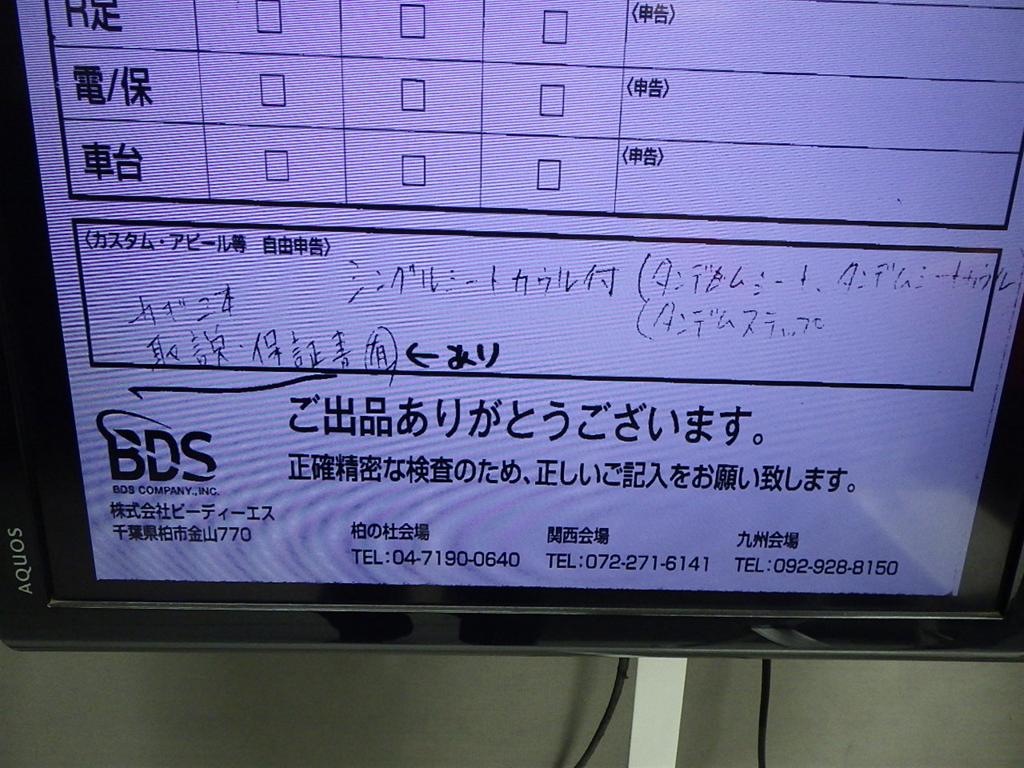 R足 □ □ □ 〈申告〉
電/保 □ □ □ 〈申告〉
車台 □ □ □ 〈申告〉
〈カスタム・アピール等 自由申告〉
シングルシートカウル付 (タンデムシート、タンデムシートカウル
カギ二本 (タンデムステップ
取説・保証書 有) ←あり
BDS
BDS COMPANY.,INC.
ご出品ありがとうございます。
正確精密な検査のため、正しいご記入をお願い致します。
株式会社ビーディーエス
千葉県柏市金山770
柏の杜会場
TEL:04-7190-0640
関西会場
TEL:072-271-6141
九州会場
TEL:092-928-8150
AQUOS